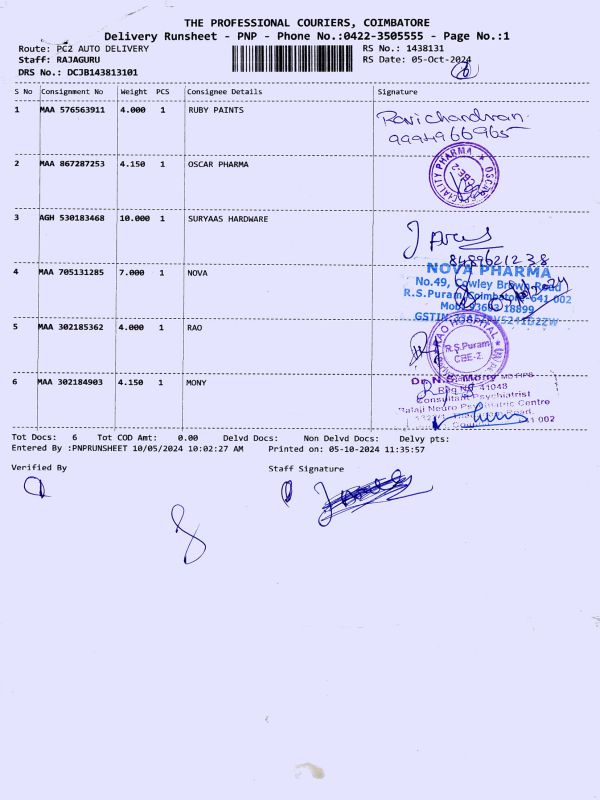 THE PROFESSIONAL COURIERS, COIMBATORE
Delivery Runsheet - PNP - Phone No.:0422-3505555 - Page No.:1
Route: PC2 AUTO DELIVERY RS No.: 1438131
Staff: RAJAGURU RS Date: 05-Oct-2024
DRS No.: DCJB143813101
S No Consignment No Weight PCS Consignee Details Signature
1 MAA 576563911 4.000 1 RUBY PAINTS
Ravichandran
9994966965
2 MAA 867287253 4.150 1 OSCAR PHARMA
3 AGH 530183468 10.000 1 SURYAAS HARDWARE
8489621238
4 MAA 705131285 7.000 1 NOVA
NOVA PHARMA
No.49, Cowley Brown Road
R.S.Puram, Coimbatore-641 002
5 MAA 302185362 4.000 1 RAO
RAO HOSPITAL
R.S.Puram
CBE-2.
6 MAA 302184903 4.150 1 MONY
Dr. N.S. Mony
Reg No: 41048
Consultant Psychiatrist
Balaji Neuro Psychiatric Centre
641 002
Tot Docs: 6 Tot COD Amt: 0.00 Delvd Docs: Non Delvd Docs: Delvy pts:
Entered By :PNPRUNSHEET 10/05/2024 10:02:27 AM Printed on: 05-10-2024 11:35:57
Verified By Staff Signature